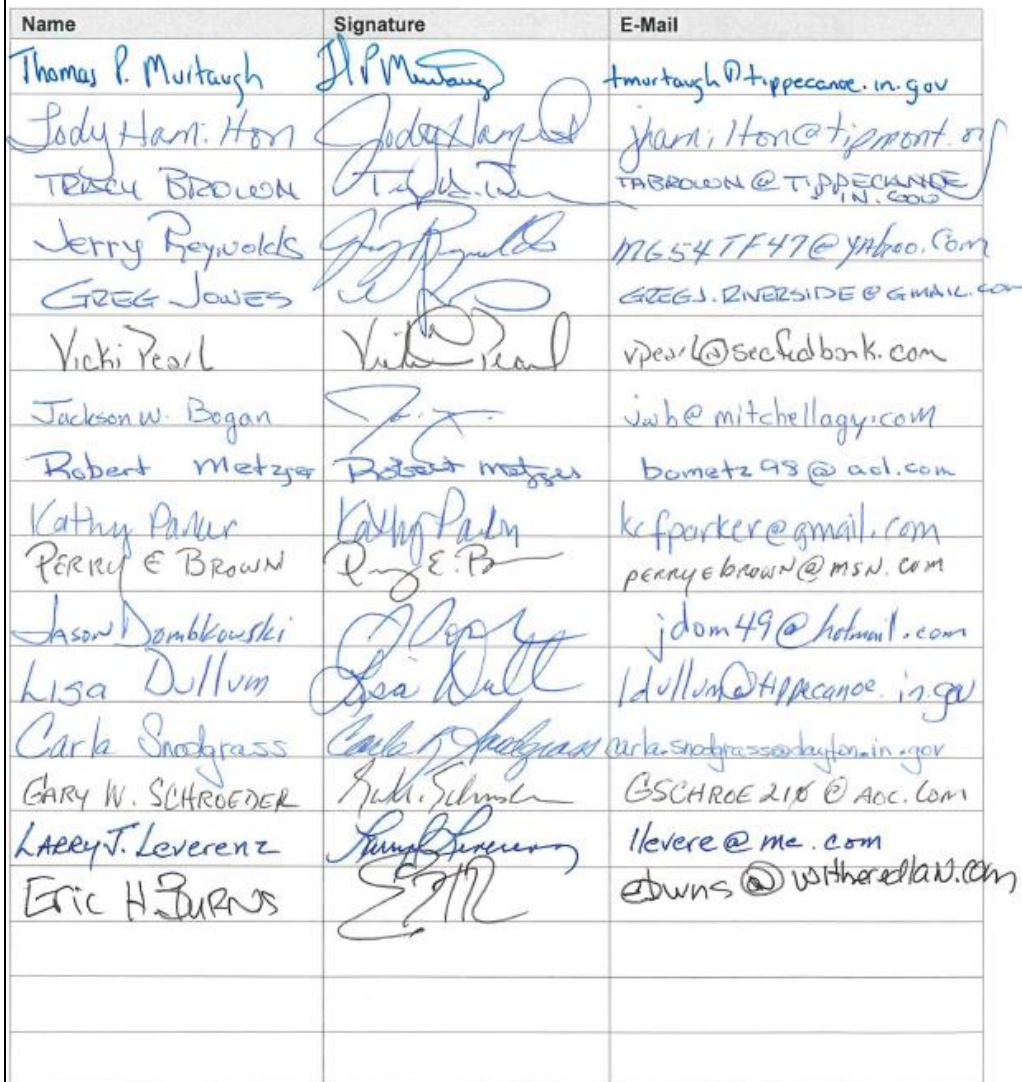 Name Signature E-Mail
Thomas P. Murtaugh tmurtaugh@tippecanoe.in.gov
Jody Hamilton Jody jhamilton@tipmont.org
TRACY BROWN TABROWN@TIPPECANOE
IN.GOV
Jerry Reynolds Jerry Reynolds MG54TF47@yahoo.com
GREG JONES GREGJ.RIVERSIDE@GMAIL.COM
Vicki Pearl Vicki Pearl vpearl@secfedbank.com
Jackson W. Bogan jwb@mitchellagy.com
Robert Metzger Robert Metzger bometz98@aol.com
Kathy Parker Kathy Parker kcfparker@gmail.com
PERRY E BROWN perryebrown@msn.com
Jason Dombkowski jdom49@hotmail.com
Lisa Dullum Lisa ldullum@tippecanoe.in.gov
Carla Snodgrass Carla Snodgrass carla.snodgrass@dayton.in.gov
GARY W. SCHROEDER
LARRY J. Leverenz llevere@me.com
Eric H. BURNS eburns@witheredlaw.com